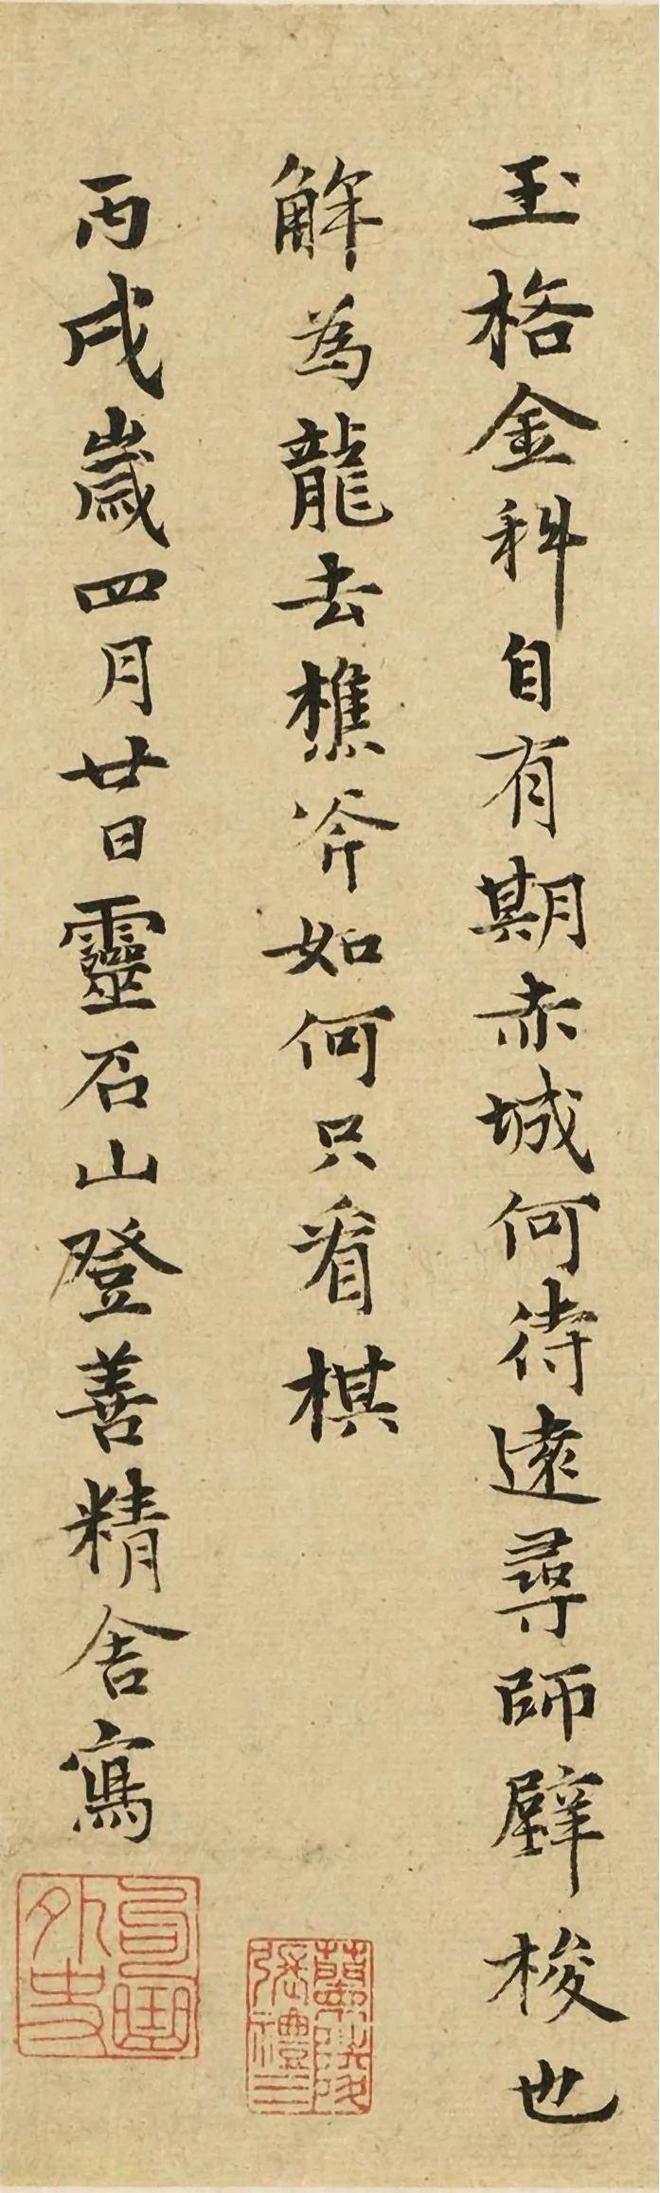 玉格金科自有期赤城何待遠尋師壁梭也
解為龍去樵斧如何只看棋
丙戌歲四月廿日靈石山登善精舍寫
句曲外史
張禮